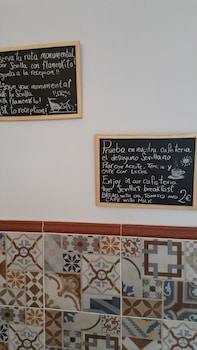 serva tu ruta monumental
por Sevilla con flamenkito!
egunta a la recepción!!
your monumental
flamenkito!
to reception!
Prueba en nuestra cafeteria
el desayuno Sevillano
Pan con Aceite, Tomate y
Café con leche
Enjoy in our cafeteria
the Sevilla's breakfast
Bread with oil, Tomato and
Café with Milk 2€